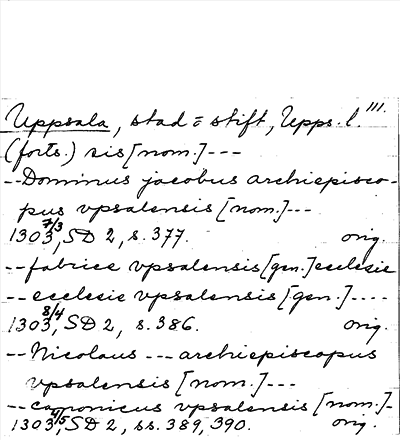 Uppsala, stad o stift, Upps. l. III.
(forts.) sis [nom.]---
--Dominus jacobus archiepisco-
pus vpsalensis [nom.]---
1303 7/3, SD 2, s. 377. orig.
--fabrice vpsalensis [gen.] ecclesie
--ecclesie vpsalensis [gen.]----
1303 8/4, SD 2, s. 386. orig.
--Nicolaus --- archiepiscopus
vpsalensis [nom.]---
--canonicus vpsalensis [nom.]-
1303 4/5, SD 2, ss. 389, 390. orig.